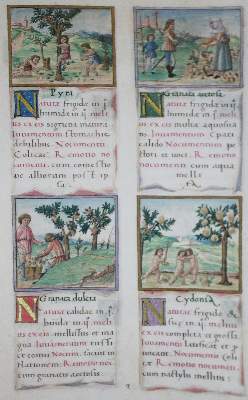 Pyri
Natura frigida in p.
humida in ij. meli
us ex eis septuma matura.
Iuvamentum stomachis
debilibus. Nocumentum.
Colicae. Remotio no
cumenti. cum comestio
ne alliorum post ip
Granata acetosa
Natura frigida in ij.
humida in meli
us ex eis multae aquosita
Iuvamentum Epati
calido Nocumentum pe
ctori et voci. Remotio
nocumenti cum aqua
mellis
Granata dulcia
Natura calidae in p.
in ij. meli
us ex eis. et ma
gna Iuvamentum tussi
et coitui Nocum. faciunt in
flationem Remotio nocu
cum granatis acetosis.
Cydonia
Natura frigidae &
sicca in ij. melius
ex eis completa et grossa.
Iuvamentum Laetificat et p
vocant. Nocumentum Co
licae Remotio nocumenti
cum